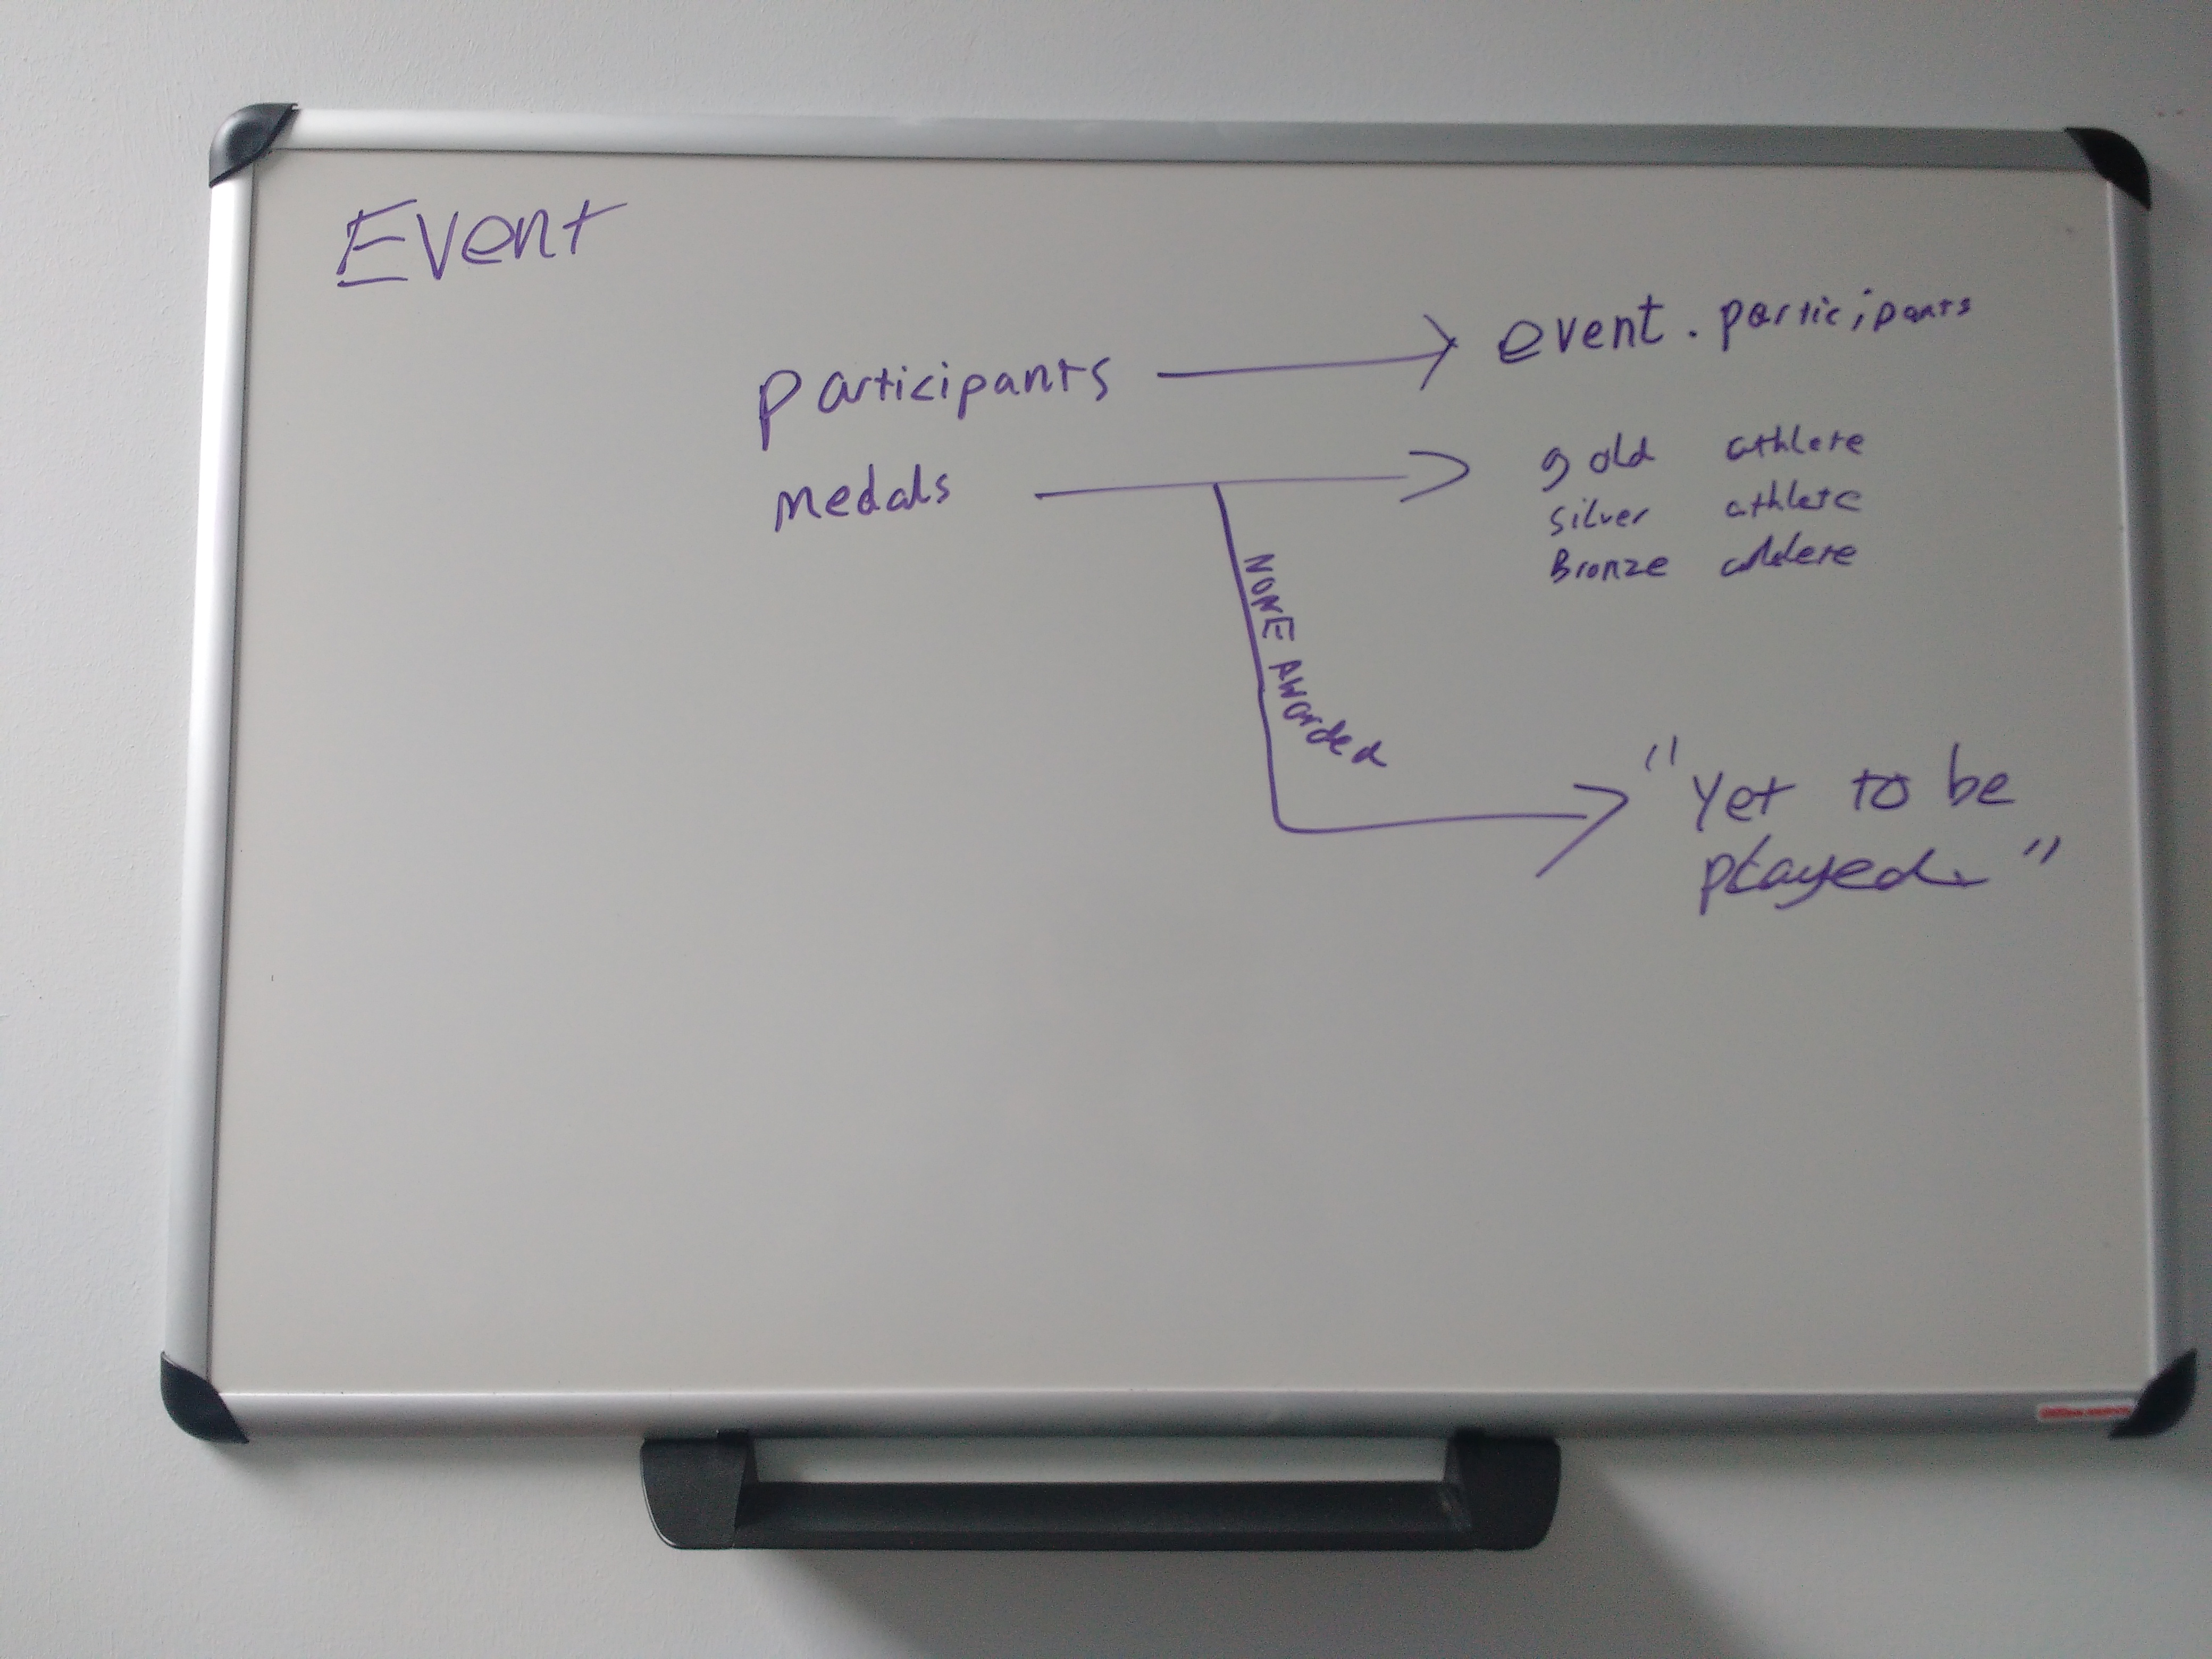 Event
participants
event. participants
medals
gold athlete
silver athlete
Bronze athlete
NONE AWarded
"Yet to be
played."